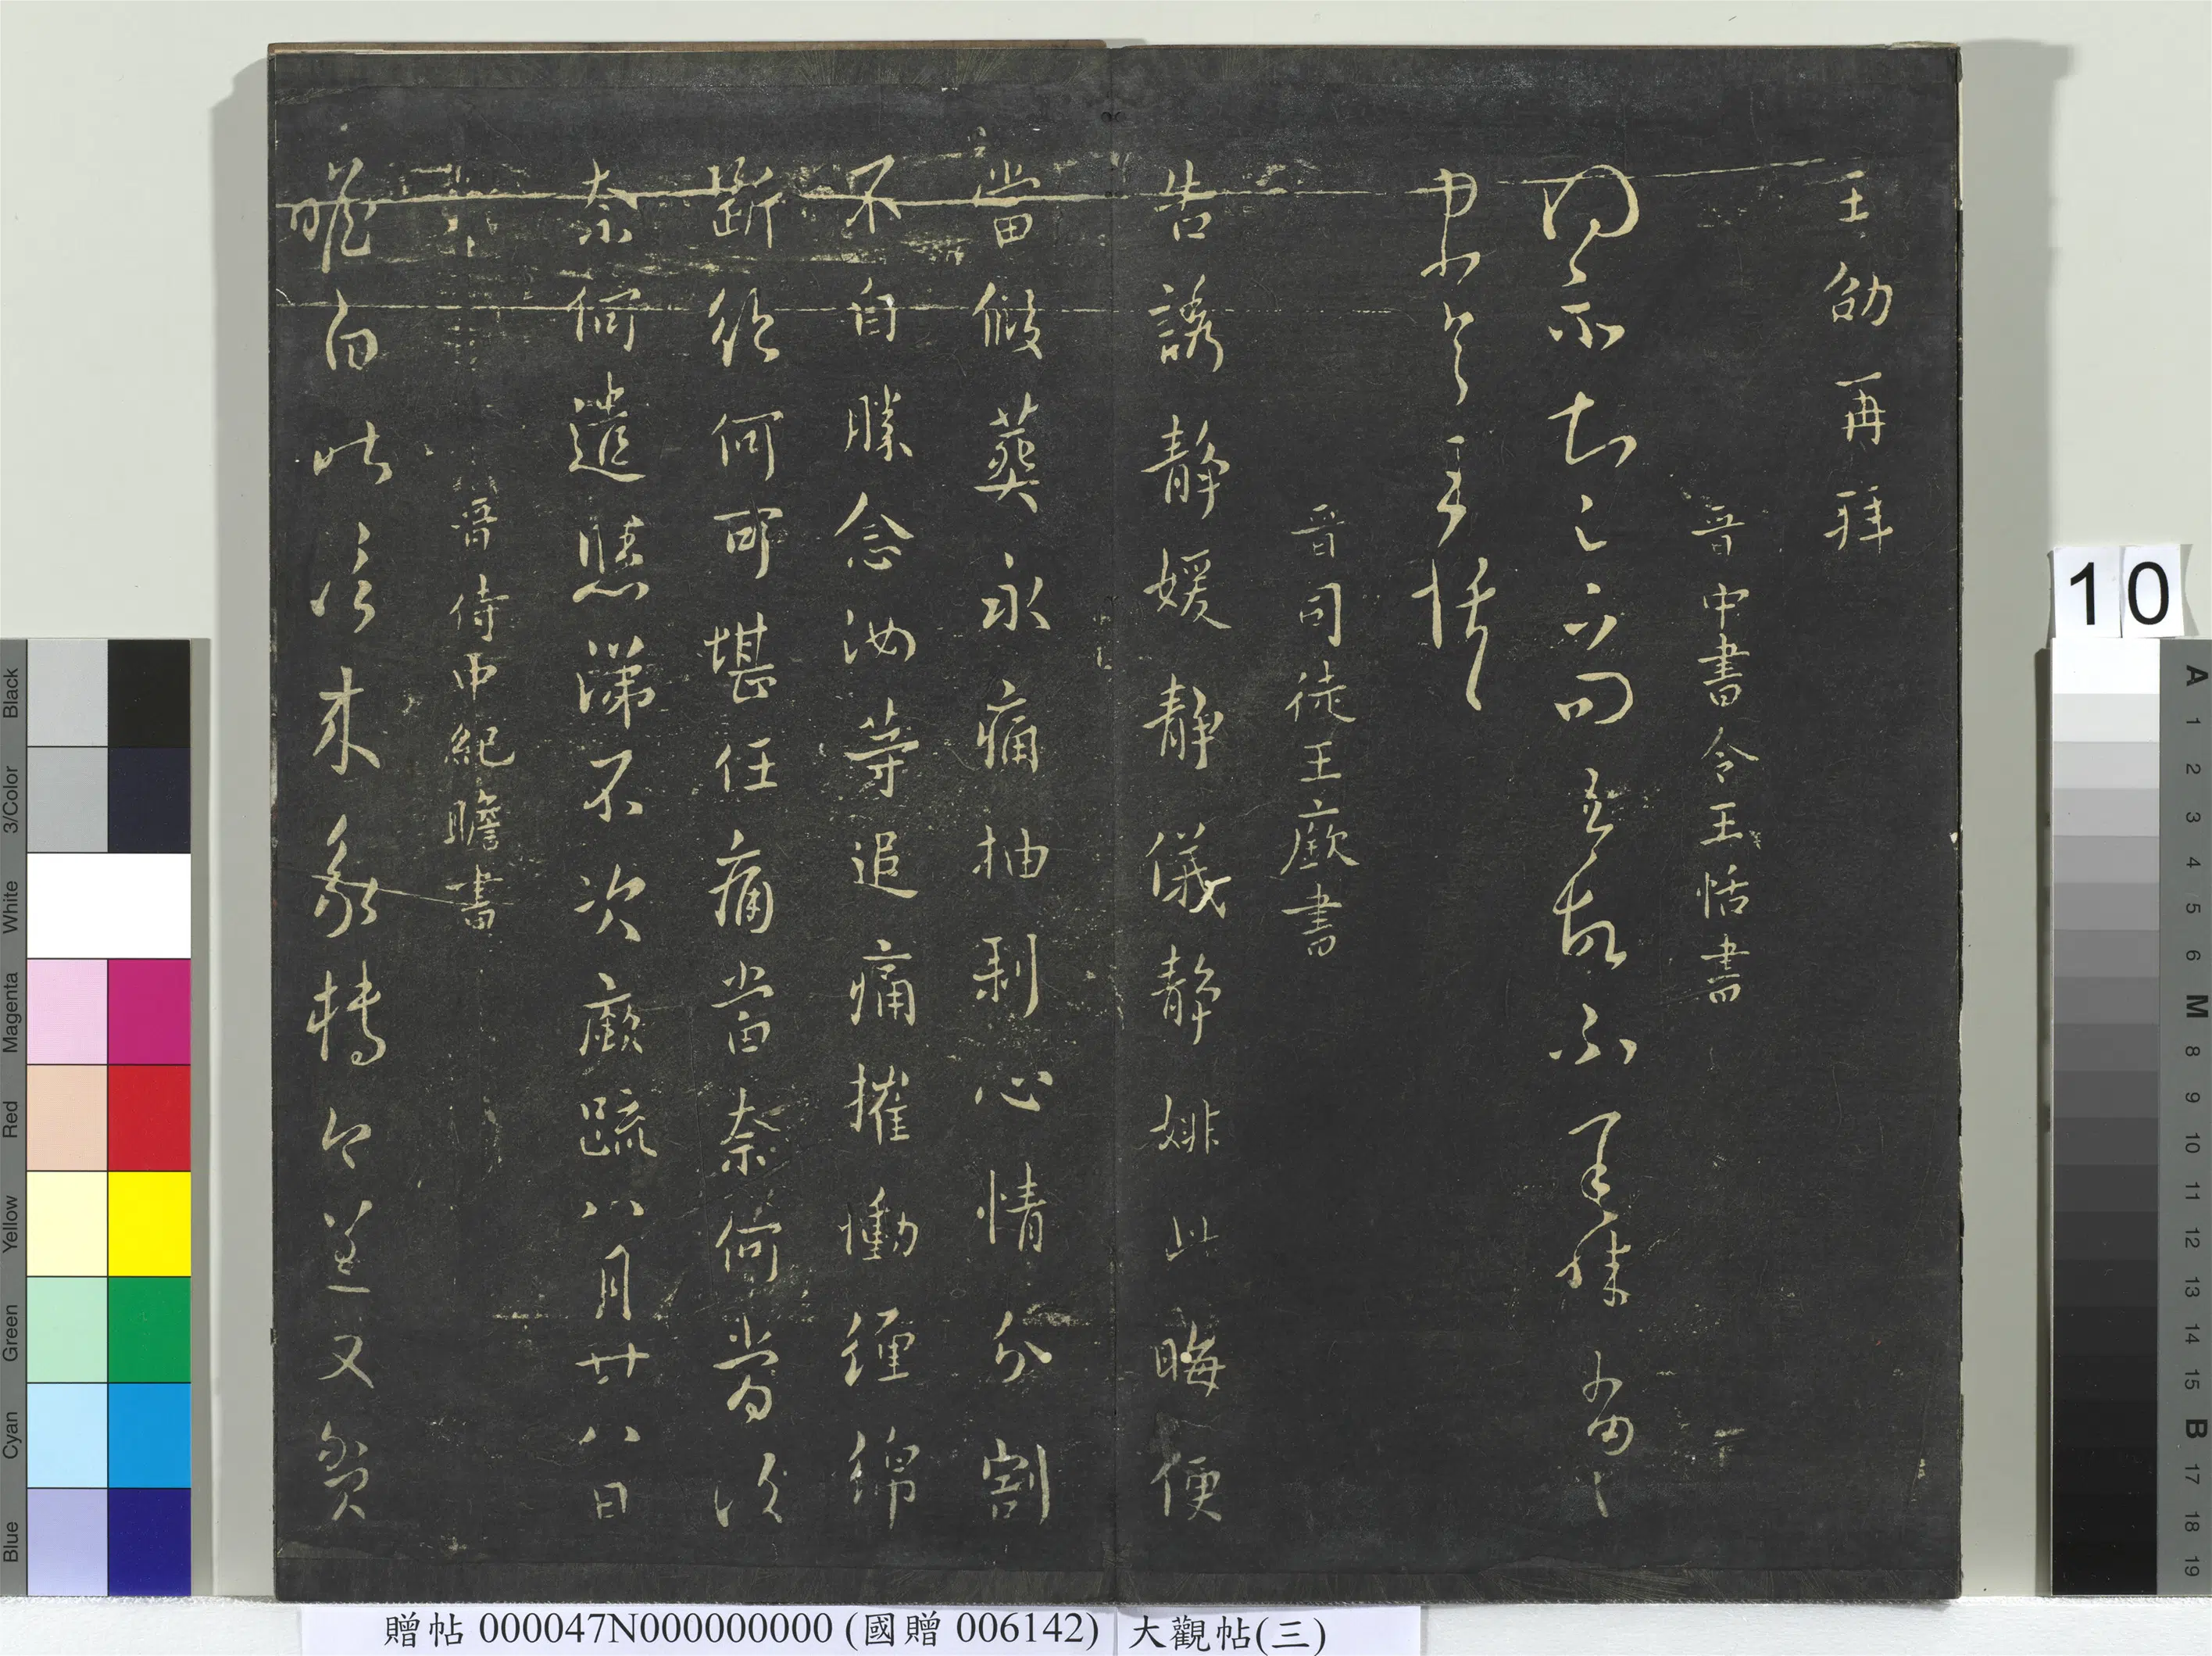 王劭再拜
晉中書令王恬書
得示知足下問吾故不
王恬
晉司徒王廞書
告誘靜媛靜儀靜此晦便
當葬永痛抽剥心情分割
不自勝念汝等追痛摧慟纏綿
斷絕何可堪任痛當奈何當復
奈何遣涕不次廞疏八月廿八日
晉侍中紀瞻書
瞻白昨信來轉又
贈帖 000047N000000000 (國贈 006142)
大觀帖(三)
10
Black
3/Color
White
Magenta
Red
Yellow
Green
Cyan
Blue
A 1 2 3 4 5 6 M 8 9 10 11 12 13 14 15 B 17 18 19